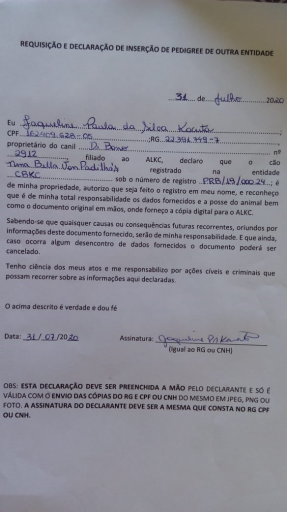 REQUISIÇÃO E DECLARAÇÃO DE INSERÇÃO DE PEDIGREE DE OUTRA ENTIDADE
31 de Julho 2020
Eu Jaqueline Paula da Silva
CPF ;RG ;
proprietário do canil Di Bener nº
2912, filiado ao ALKC, declaro que o cão
Bella Von registrado na entidade
CBKC sob o número de registro ; é
de minha propriedade, autorizo que seja feito o registro em meu nome, e reconheço
que é de minha total responsabilidade os dados fornecidos e a posse do animal bem
como o documento original em mãos, onde forneço a cópia digital para o ALKC.
Sabendo-se que quaisquer causas ou consequências futuras recorrentes, oriundos por
informações deste documento fornecido, serão de minha responsabilidade. E que ainda,
caso ocorra algum desencontro de dados fornecidos o documento poderá ser
cancelado.
Tenho ciência dos meus atos e me responsabilizo por ações cíveis e criminais que
possam recorrer sobre as informações aqui declaradas.
O acima descrito é verdade e dou fé
Data: 31/07/2020 Assinatura:
(igual ao RG ou CNH)
OBS: ESTA DECLARAÇÃO DEVE SER PREENCHIDA A MÃO PELO DECLARANTE E SÓ É
VÁLIDA COM O ENVIO DAS CÓPIAS DO RG E CPF OU CNH DO MESMO EM JPEG, PNG OU
FOTO. A ASSINATURA DO DECLARANTE DEVE SER A MESMA QUE CONSTA NO RG CPF
OU CNH.